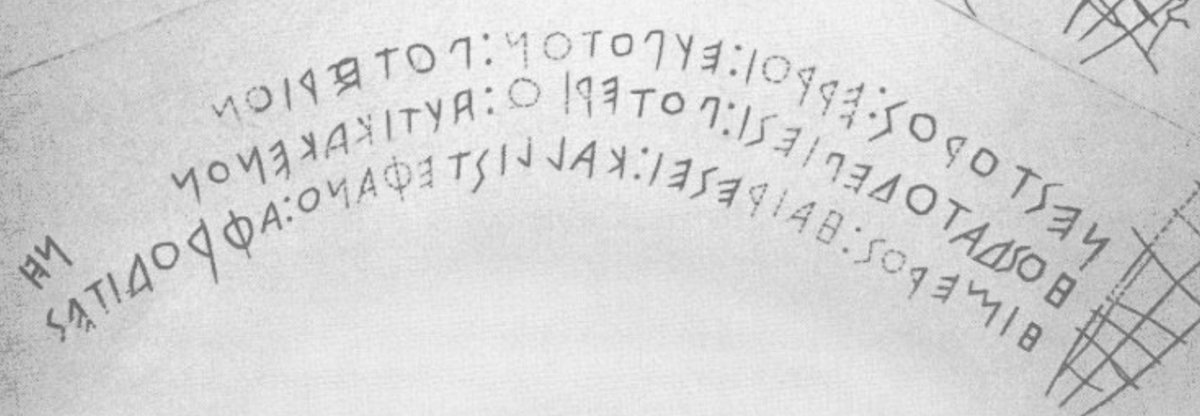 ΝΕΣΤΟΡΟΣ:ΕΡΡΟΙ:ΕΥΠΟΤΟΝ:ΠΟΤΕΡΙΟΝ
ΗΟΣΔΑΤΟΔΕΠΙΕΣΙ:ΠΟΤΕΡΙΟ:ΑΥΤΙΚΑΚΕΝΟΝ
ΗΙΜΕΡΟΣ:ΗΑΙΡΕΣΕΙ:ΚΑΛΛΙΣΤΕΦΑΝΟ:ΑΦΡΟΔΙΤΕΣ